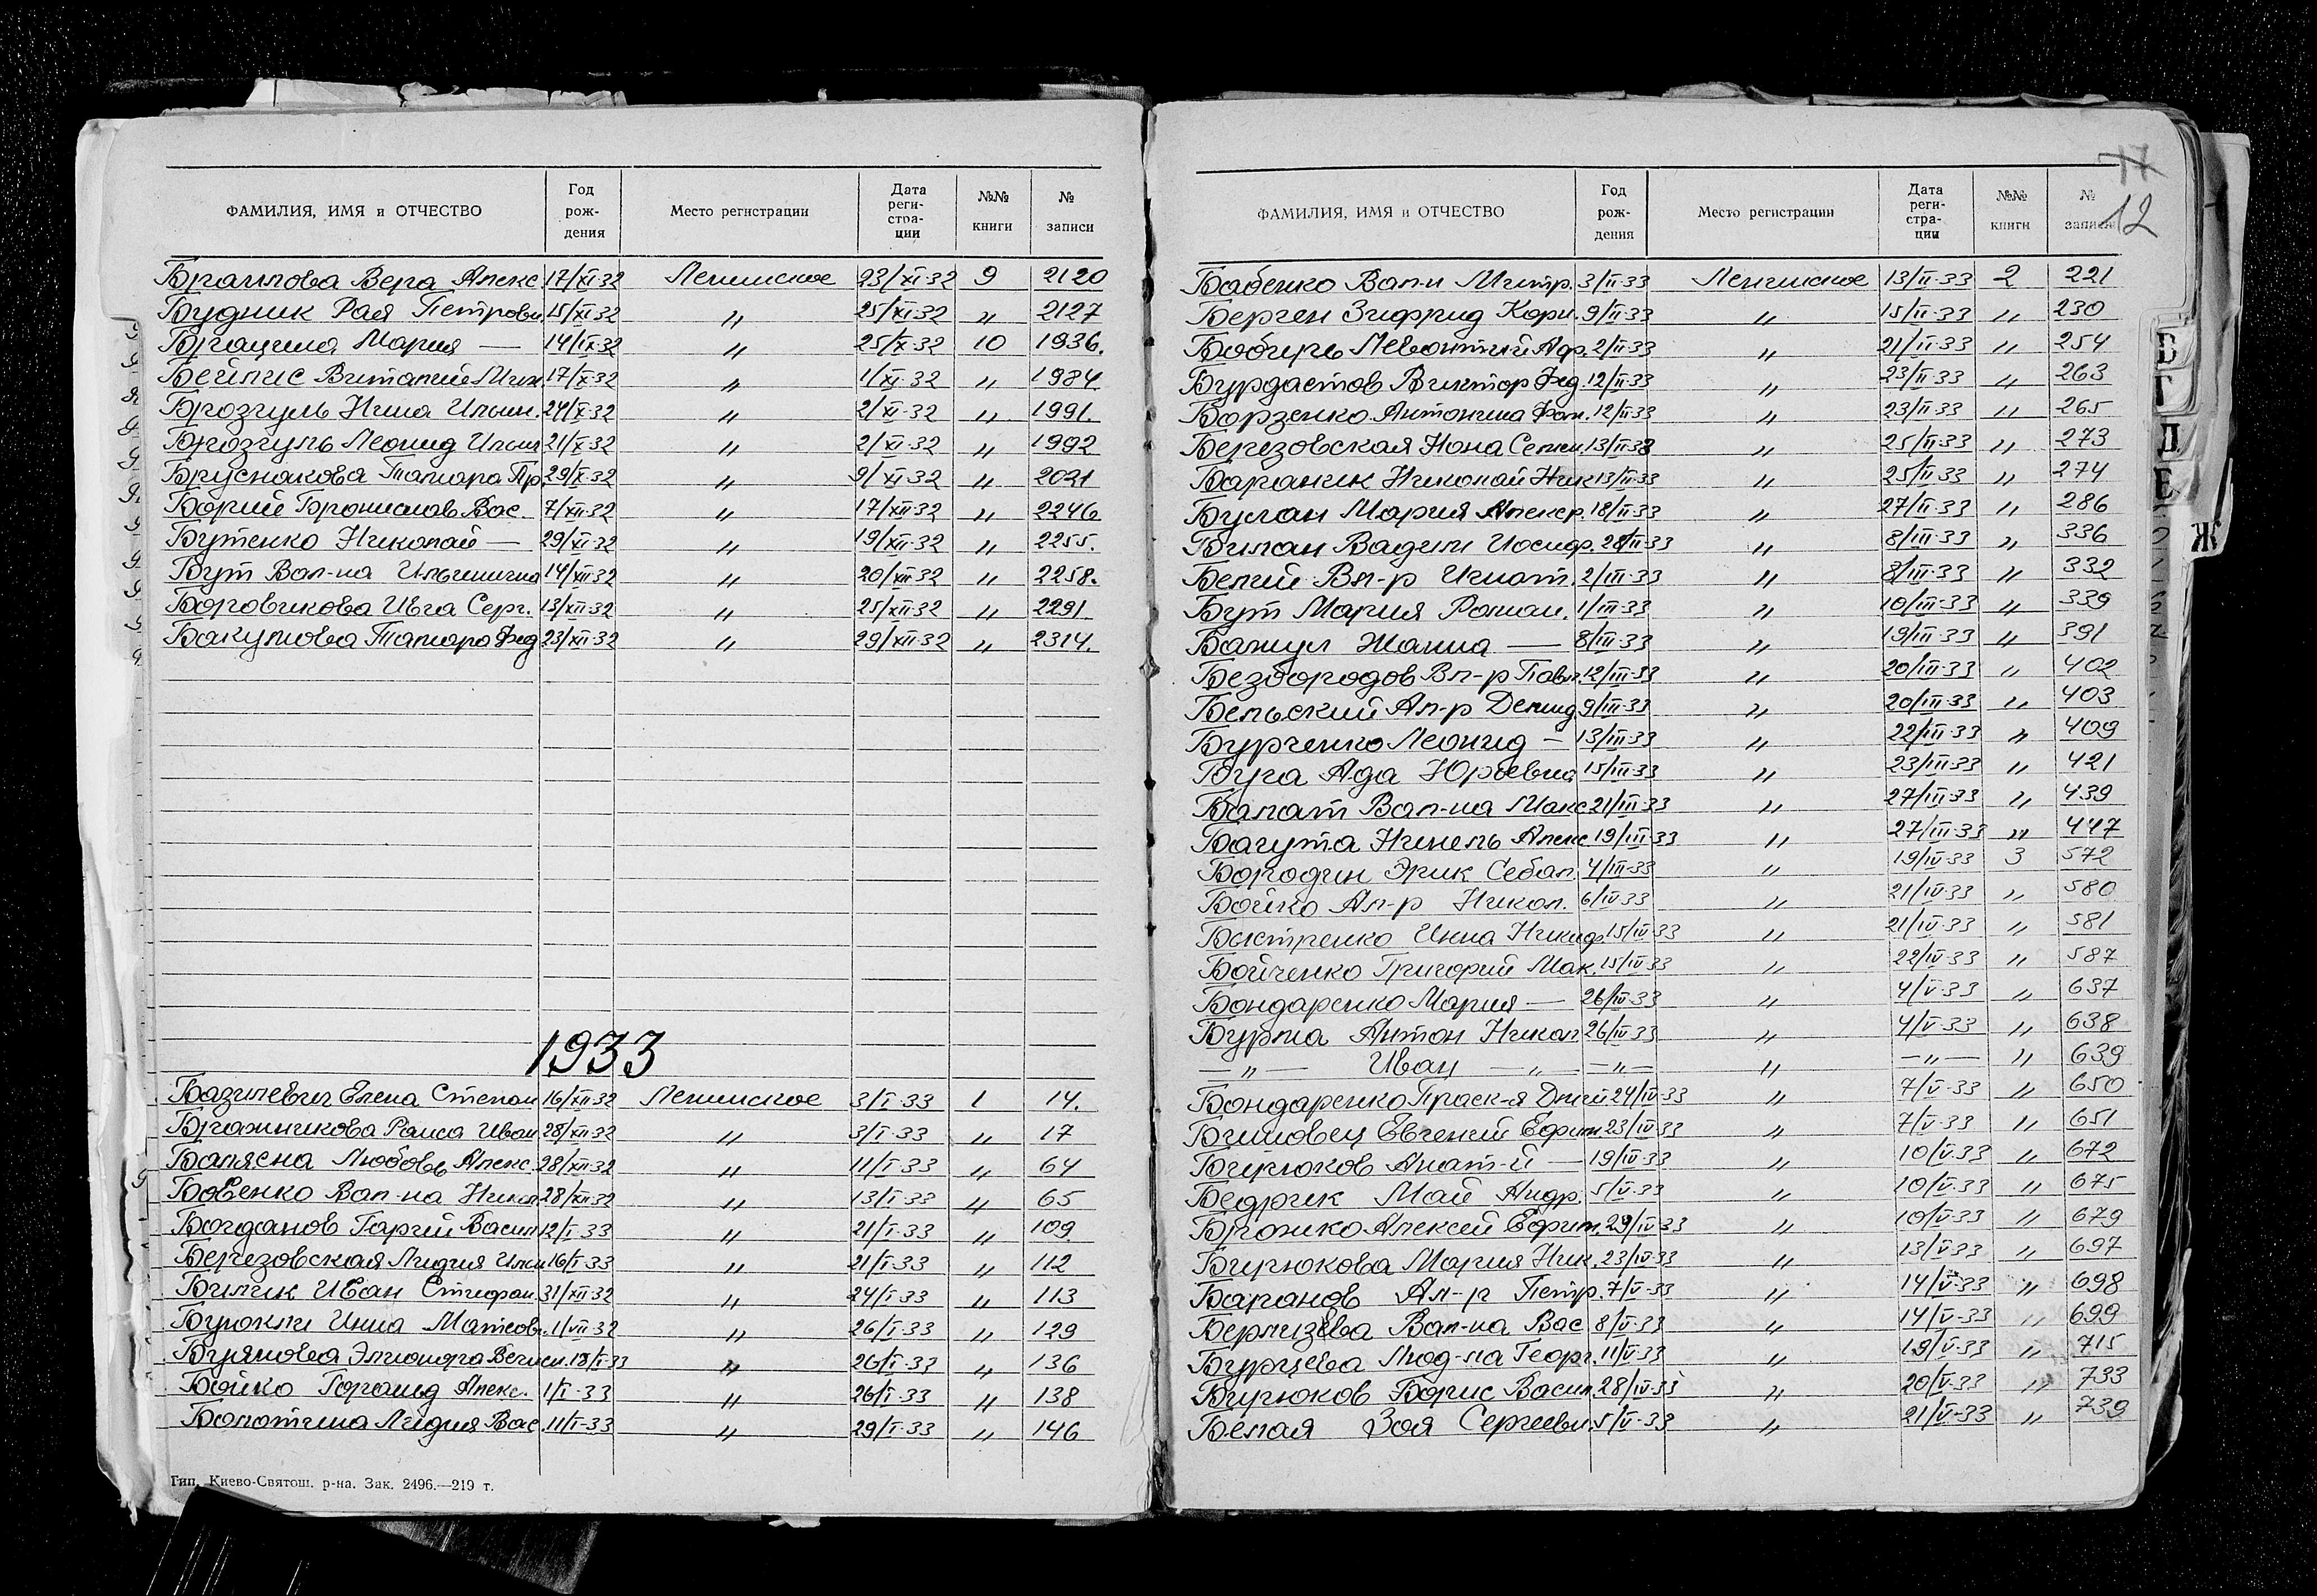 ФАМИЛИЯ, ИМЯ и ОТЧЕСТВО Год рождения Место регистрации Дата регистрации №№ книги № записи
Вера Алекс 17/XI-32 Ленинское 23/XI-32 9 2120
Будник Рая Петровн. 15/XI-32 〃 25/XI-32 〃 2127
Мария — 14/IX-32 〃 25/X-32 10 1936.
Бейлис Виталий Мих. 17/X-32 〃 1/XI-32 〃 1984
Брозгуль Нина Ильин. 24/X-32 〃 2/XI-32 〃 1991.
Брозгуль Леонид Ильич 21/X-32 〃 2/XI-32 〃 1992
Бруснакова Тамара Пр. 29/X-32 〃 9/XI-32 〃 2021
Борий Бронислав Вас. 7/XII-32 〃 17/XII-32 〃 2246
Бутенко Николай — 29/XI-32 〃 19/XII-32 〃 2255.
Бут Вал-на Ильинична 14/XII-32 〃 20/XII-32 〃 2258.
Боровикова Ивга Серг. 13/XII-32 〃 25/XII-32 〃 2291
Бакумова Тамара Фед 23/XII-32 〃 29/XII-32 〃 2314.
1933
Базилевич Елена Степан 16/XII-32 Ленинское 3/I-33 1 14.
Бражникова Раиса Иван 28/XII-32 〃 3/I-33 〃 17
Балясна Любовь Алекс. 28/XII-32 〃 11/I-33 〃 64
Бовенко Вал-на Никол 28/XII-32 〃 13/I-33 〃 65
Богданов Гарий Васил 12/I-33 〃 21/I-33 〃 109
Березовская Лидия 16/I-33 〃 21/I-33 〃 112
Билик Иван Стефан. 31/XII-32 〃 24/I-33 〃 113
Инна Матвов. 1/VII-32 〃 26/I-33 〃 129
Элионора 18/I-33 〃 26/I-33 〃 136
Бойко Горанд Алекс. 1/I-33 〃 26/I-33 〃 138
Болотина Лидия Вас. 11/I-33 〃 29/I-33 〃 146
Гип. Киево-Святош. р-на. Зак. 2496.—219 т.
17
12
ФАМИЛИЯ, ИМЯ и ОТЧЕСТВО Год рождения Место регистрации Дата регистрации №№ книги № записи
Бабенко Вал-н Митр. 3/II-33 Ленинское 13/II-33 2 221
Берген Зифрид Корн. 9/II-33 〃 15/II-33 〃 230
Бобирь Левонтий Аф. 2/II-33 〃 21/II-33 〃 254
Бурдастов Виктор Фед. 12/II-33 〃 23/II-33 〃 263
Борзенко Антонина Фом. 12/II-33 〃 23/II-33 〃 265
Березовская Нона Семен. 13/II-33 〃 25/II-33 〃 273
Бараник Николай Ник 13/II-33 〃 25/II-33 〃 274
Булан Мария Алекср. 18/II-33 〃 27/II-33 〃 286
Билан Вадим Иосиф. 28/II-33 〃 8/III-33 〃 336
Белий Вл-р Игнат. 2/III-33 〃 8/III-33 〃 332
Бут Мария Роман. 1/III-33 〃 10/III-33 〃 339
Бажул Жанна — 8/III-33 〃 19/III-33 〃 391
Безбородов Вл-р Павл. 12/III-33 〃 20/III-33 〃 402
Бельский Ал-р Демид 9/III-33 〃 20/III-33 〃 403
Бурченко Леонид — 13/III-33 〃 22/III-33 〃 409
Буга Ада Юрьевна 15/III-33 〃 23/III-33 〃 421
Балат Вал-на Макс 21/III-33 〃 27/III-33 〃 439
Багута Нинель Алекс 19/III-33 〃 27/III-33 〃 447
Бородин Эрик Себал. 4/III-33 〃 19/IV-33 3 572
Бойко Ал-р Никол. 6/IV-33 〃 21/IV-33 〃 580
Быстренко Инна Никиф. 15/IV-33 〃 21/IV-33 〃 581
Бойченко Григорий Мак. 15/IV-33 〃 22/IV-33 〃 587
Бондаренко Мария — 26/IV-33 〃 4/V-33 〃 637
Бурла Антон Никол. 26/IV-33 〃 4/V-33 〃 638
—〃— Иван —〃— —〃— 〃 —〃— 〃 639
Бондаренко Праск-я Дмит 24/IV-33 〃 7/V-33 〃 650
Биловец Евгений Ефим 23/IV-33 〃 7/V-33 〃 651
Бирюков Анат-й — 19/IV-33 〃 10/V-33 〃 672
Бедрик Май Андр. 5/V-33 〃 10/V-33 〃 675
Брожко Алексей Ефим. 29/IV-33 〃 10/V-33 〃 679
Бирюкова Мария Ник. 23/IV-33 〃 13/V-33 〃 697
Баранов Ал-р Петр. 7/V-33 〃 14/V-33 〃 698
Берлизева Вал-на Вас 8/V-33 〃 14/V-33 〃 699
Бурцева Люд-ла Георг. 11/V-33 〃 19/V-33 〃 715
Бирюков Борис Васил. 28/IV-33 〃 20/V-33 〃 733
Белая Зоя Сергеевн. 5/V-33 〃 21/V-33 〃 739
В
Г
Д
Е
Ж